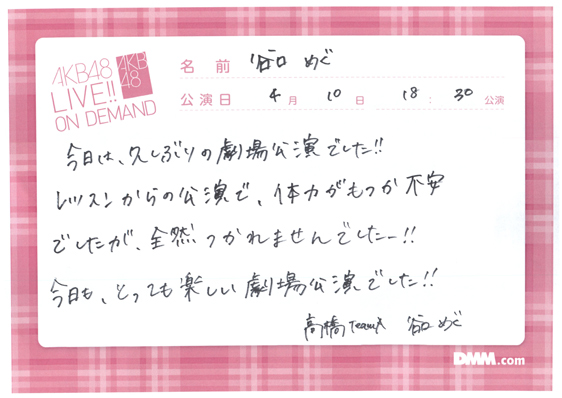 AKB48
LIVE!!
ON DEMAND
AKB
48
名前 谷口 めぐ
公演日 4月 10日 18:30公演
今日は、久しぶりの劇場公演でした!!
レッスンからの公演で、体力がもつか不安
でしたが、全然つかれませんでしたー!!
今日も、とっても楽しい劇場公演でした!!
高橋TeamA 谷口めぐ
DMM.com